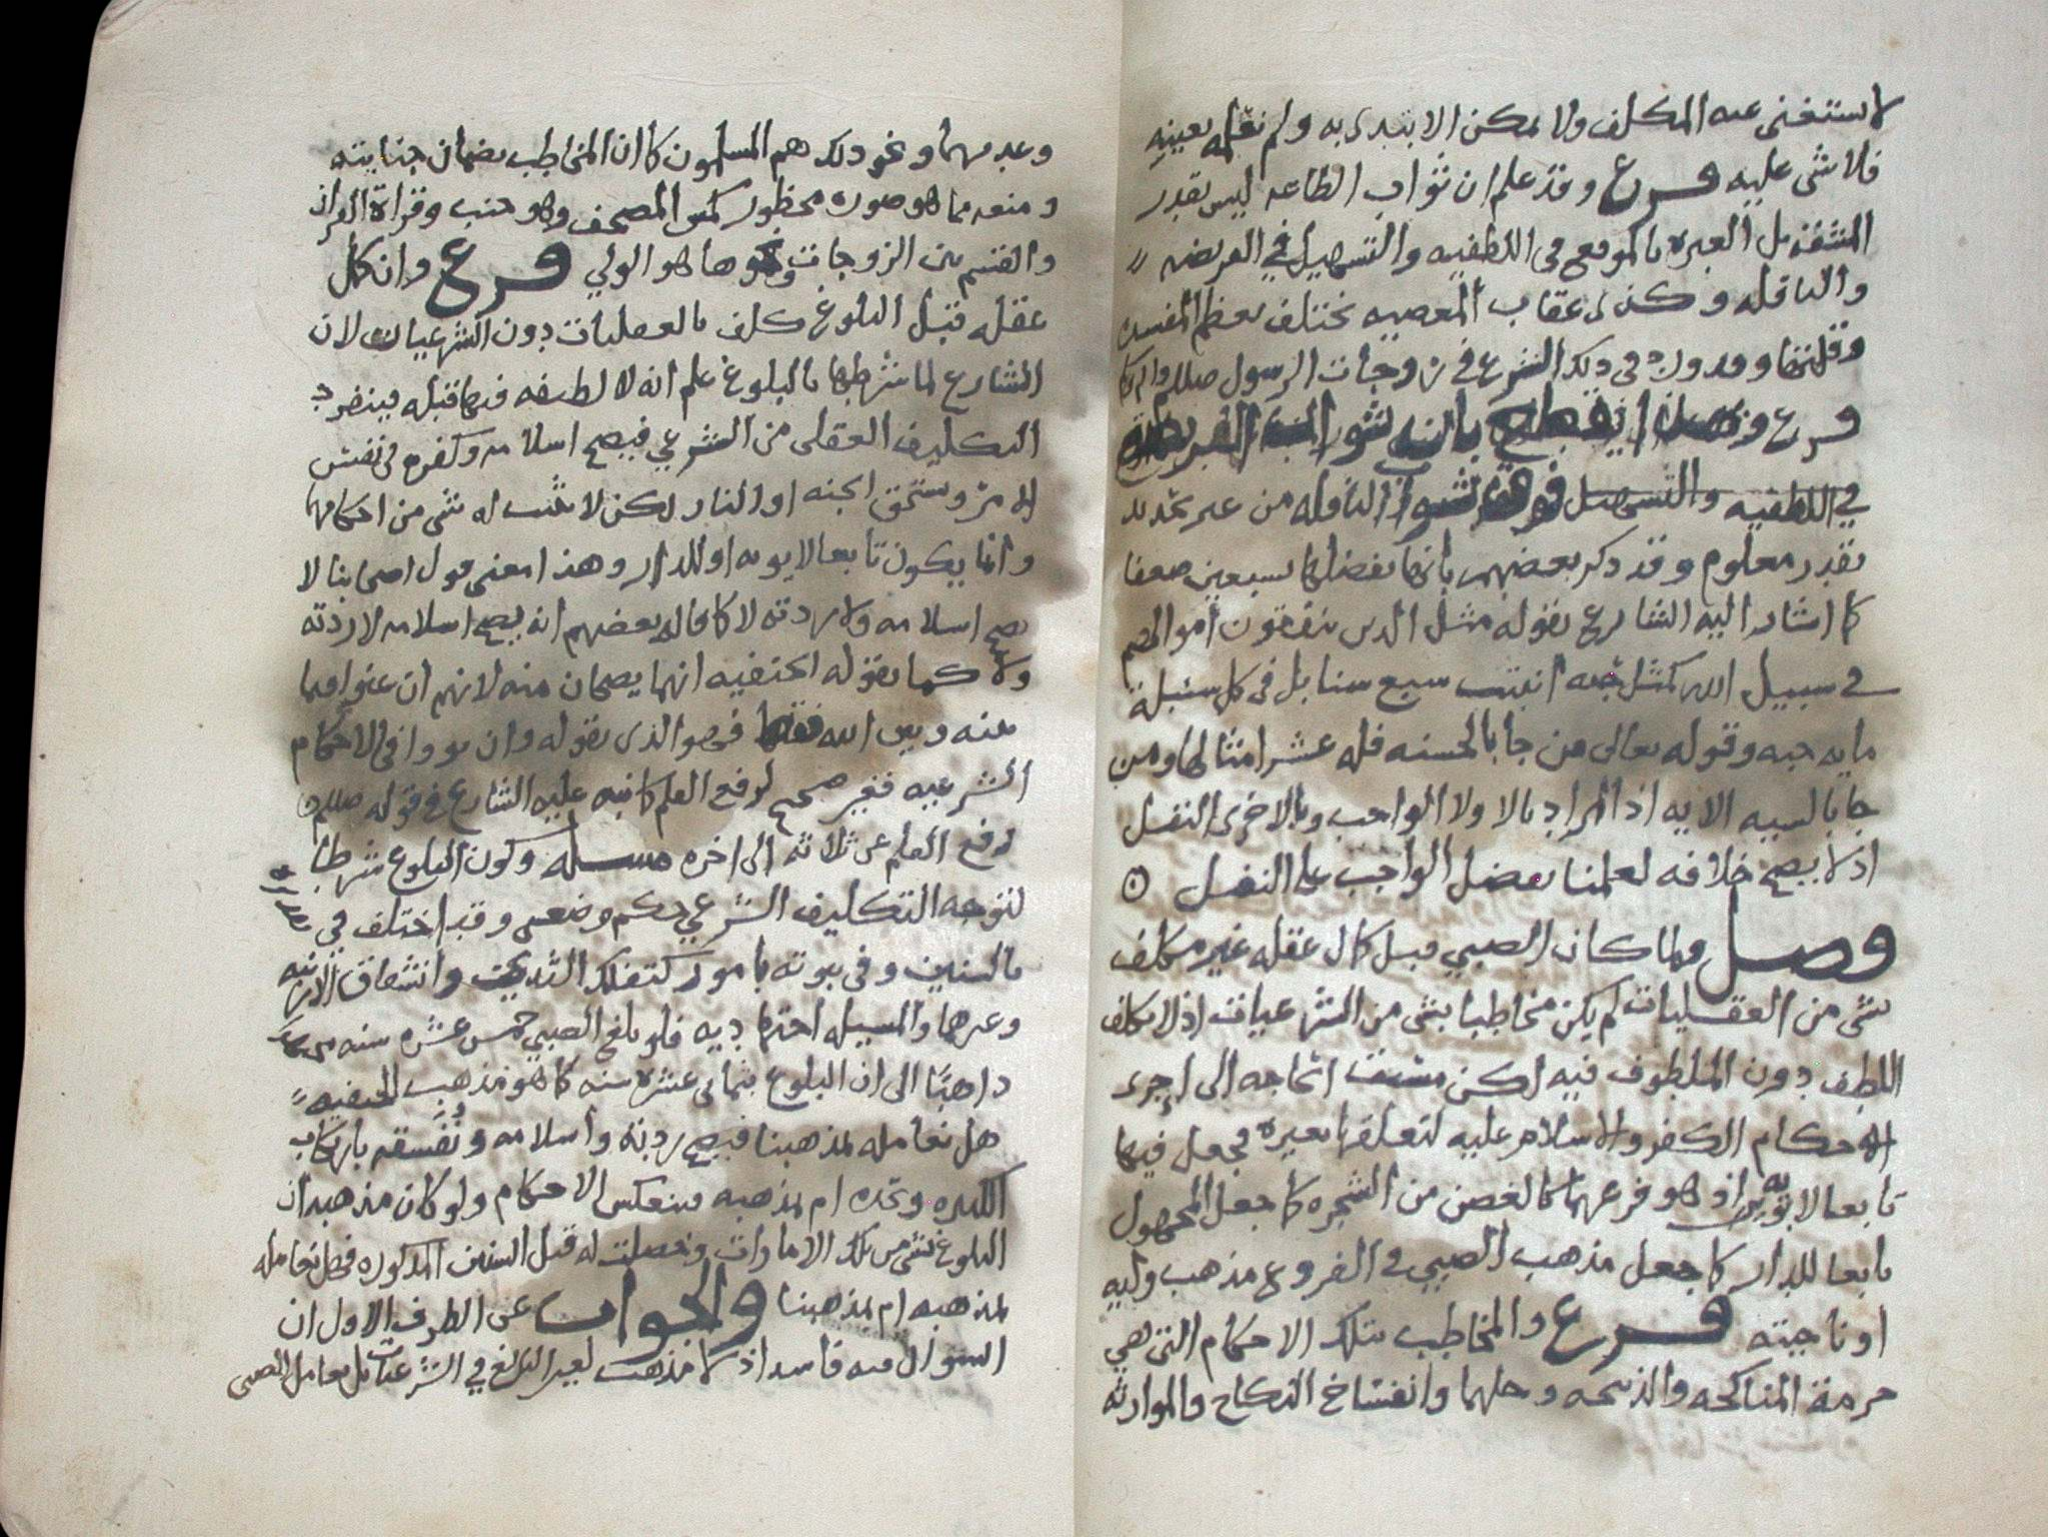 لا يستغنى عنه المكلف ولا يمكن الابتدى به ولم نعلمه بعينه
فلا شى عليه فرع وقد علم ان ثواب الطاعه ليس بقدر
المشقه بل العبره بالموقع فى اللطفيه والتسهيل في الفريضه
والنافله وكذى عقاب المعصيه يختلف بعظم المفسده
وقلتها وورود فى ذلك الشرع في زوجات الرسول صللم
فرع بان ثواب الفريضه
في اللطفيه والتسهيل فوق ثواب النافله من غير تحديد
بقدر معلوم وقد ذكر بعضهم بانها تفضلها بسبعين ضعفا
كما اشار اليه الشارع بقوله مثل الدين ينفقون اموالهم
في سبيل الله كمثل حبه انبتت سبع سنابل فى كل سنبلة
مايه حبه وقوله تعالى من جا بالحسنه فله عشر امثالها ومن
جا بالسيه الايه اذ المراد بالاولا الواجب وبالاخرى النفل
اذ لا يصح خلافه لعلمنا بفضل الواجب على النفل
وصل ولما كان الصبي قبل كمال عقله غير مكلف
بشى من العقليات لم يكن مخاطبا بشى من الشرعيات اذ لا يكلف
اللطف دون الملطوف فيه لكن مست الحاجه الى اجرى
احكام الكفر والاسلام عليه لتعلقها بغيره فجعل فيها
تابعا لابويه اذ هو فرعهما كالغصن من الشجره كما جعل المجهول
تابعا للدار كما جعل مذهب الصبي فى الفروع مذهب وليه
او ناحيته فرع والمخاطب بتلك الاحكام التى هي
حرمة المناكحه والذبيحه وحلهما وانفساخ النكاح والموارثه
وعدمهما ونحو ذلك هم المسلمون كما ان المخاطب بضمان جنايته
ومنعه مما هو صوره محظور كمس المصحف وهو جنب وقراة القران
والقسم بين الزوجات ونحوها هو الولي فرع وان كمل
عقله قبل البلوغ كلف بالعقليات دون الشرعيات لان
الشارع لما شرطها بالبلوغ علم انه لا لطيفه فيها قبله فينفرد
التكليف العقلى من الشرعي فيصح اسلامه وكفره فى نفس
الامر ويستحق الجنه او النار لكن لا يثبت له شى من احكامهما
وانما يكون تابعا لابويه او للدار وهذا معنى قول اصحابنا لا
يصح اسلامه ولا ردته لا كما قاله بعضهم انه يصح اسلامه لا ردته
ولا كما يقوله الحنفيه انهما يصحان منه لانهم ان عنوا فيما
بينه وبين الله فقط فهو الذى نقوله وان فى الاحكام
الشرعيه فغير صحيح لرفع القلم كما نبه عليه الشارع فى قوله صللم
رفع القلم عن ثلاثه الى اخره مسله وكون البلوغ شرطا
لتوجه التكليف الشرعي حكم وضعي وقد اختلف في
بالسنين وفى ثبوته بامور كتفلك الثديين وانشقاق الارنبه
وغيرهما والمسيله اجتهاديه فلو بلغ الصبي خمس عشره سنه
ذاهبا الى ان البلوغ بثماني عشره سنه كما هو مذهب الحنفيه
هل نعامله بمذهبنا فيصح ردته واسلامه ونفسقه بارتكاب
الكبيره ونحده ام بمذهبه فينعكس الاحكام ولو كان مذهبه ان
البلوغ بشى من تلك الامارات وحصلت له قبل السنين المذكوره فهل نعامله
بمذهبه ام بمذهبنا والجواب عن الطرف الاول ان
السوال فيه فاسد اذ لا مذهب لغير البالغ في الشرعيات بل يعامل الصبي